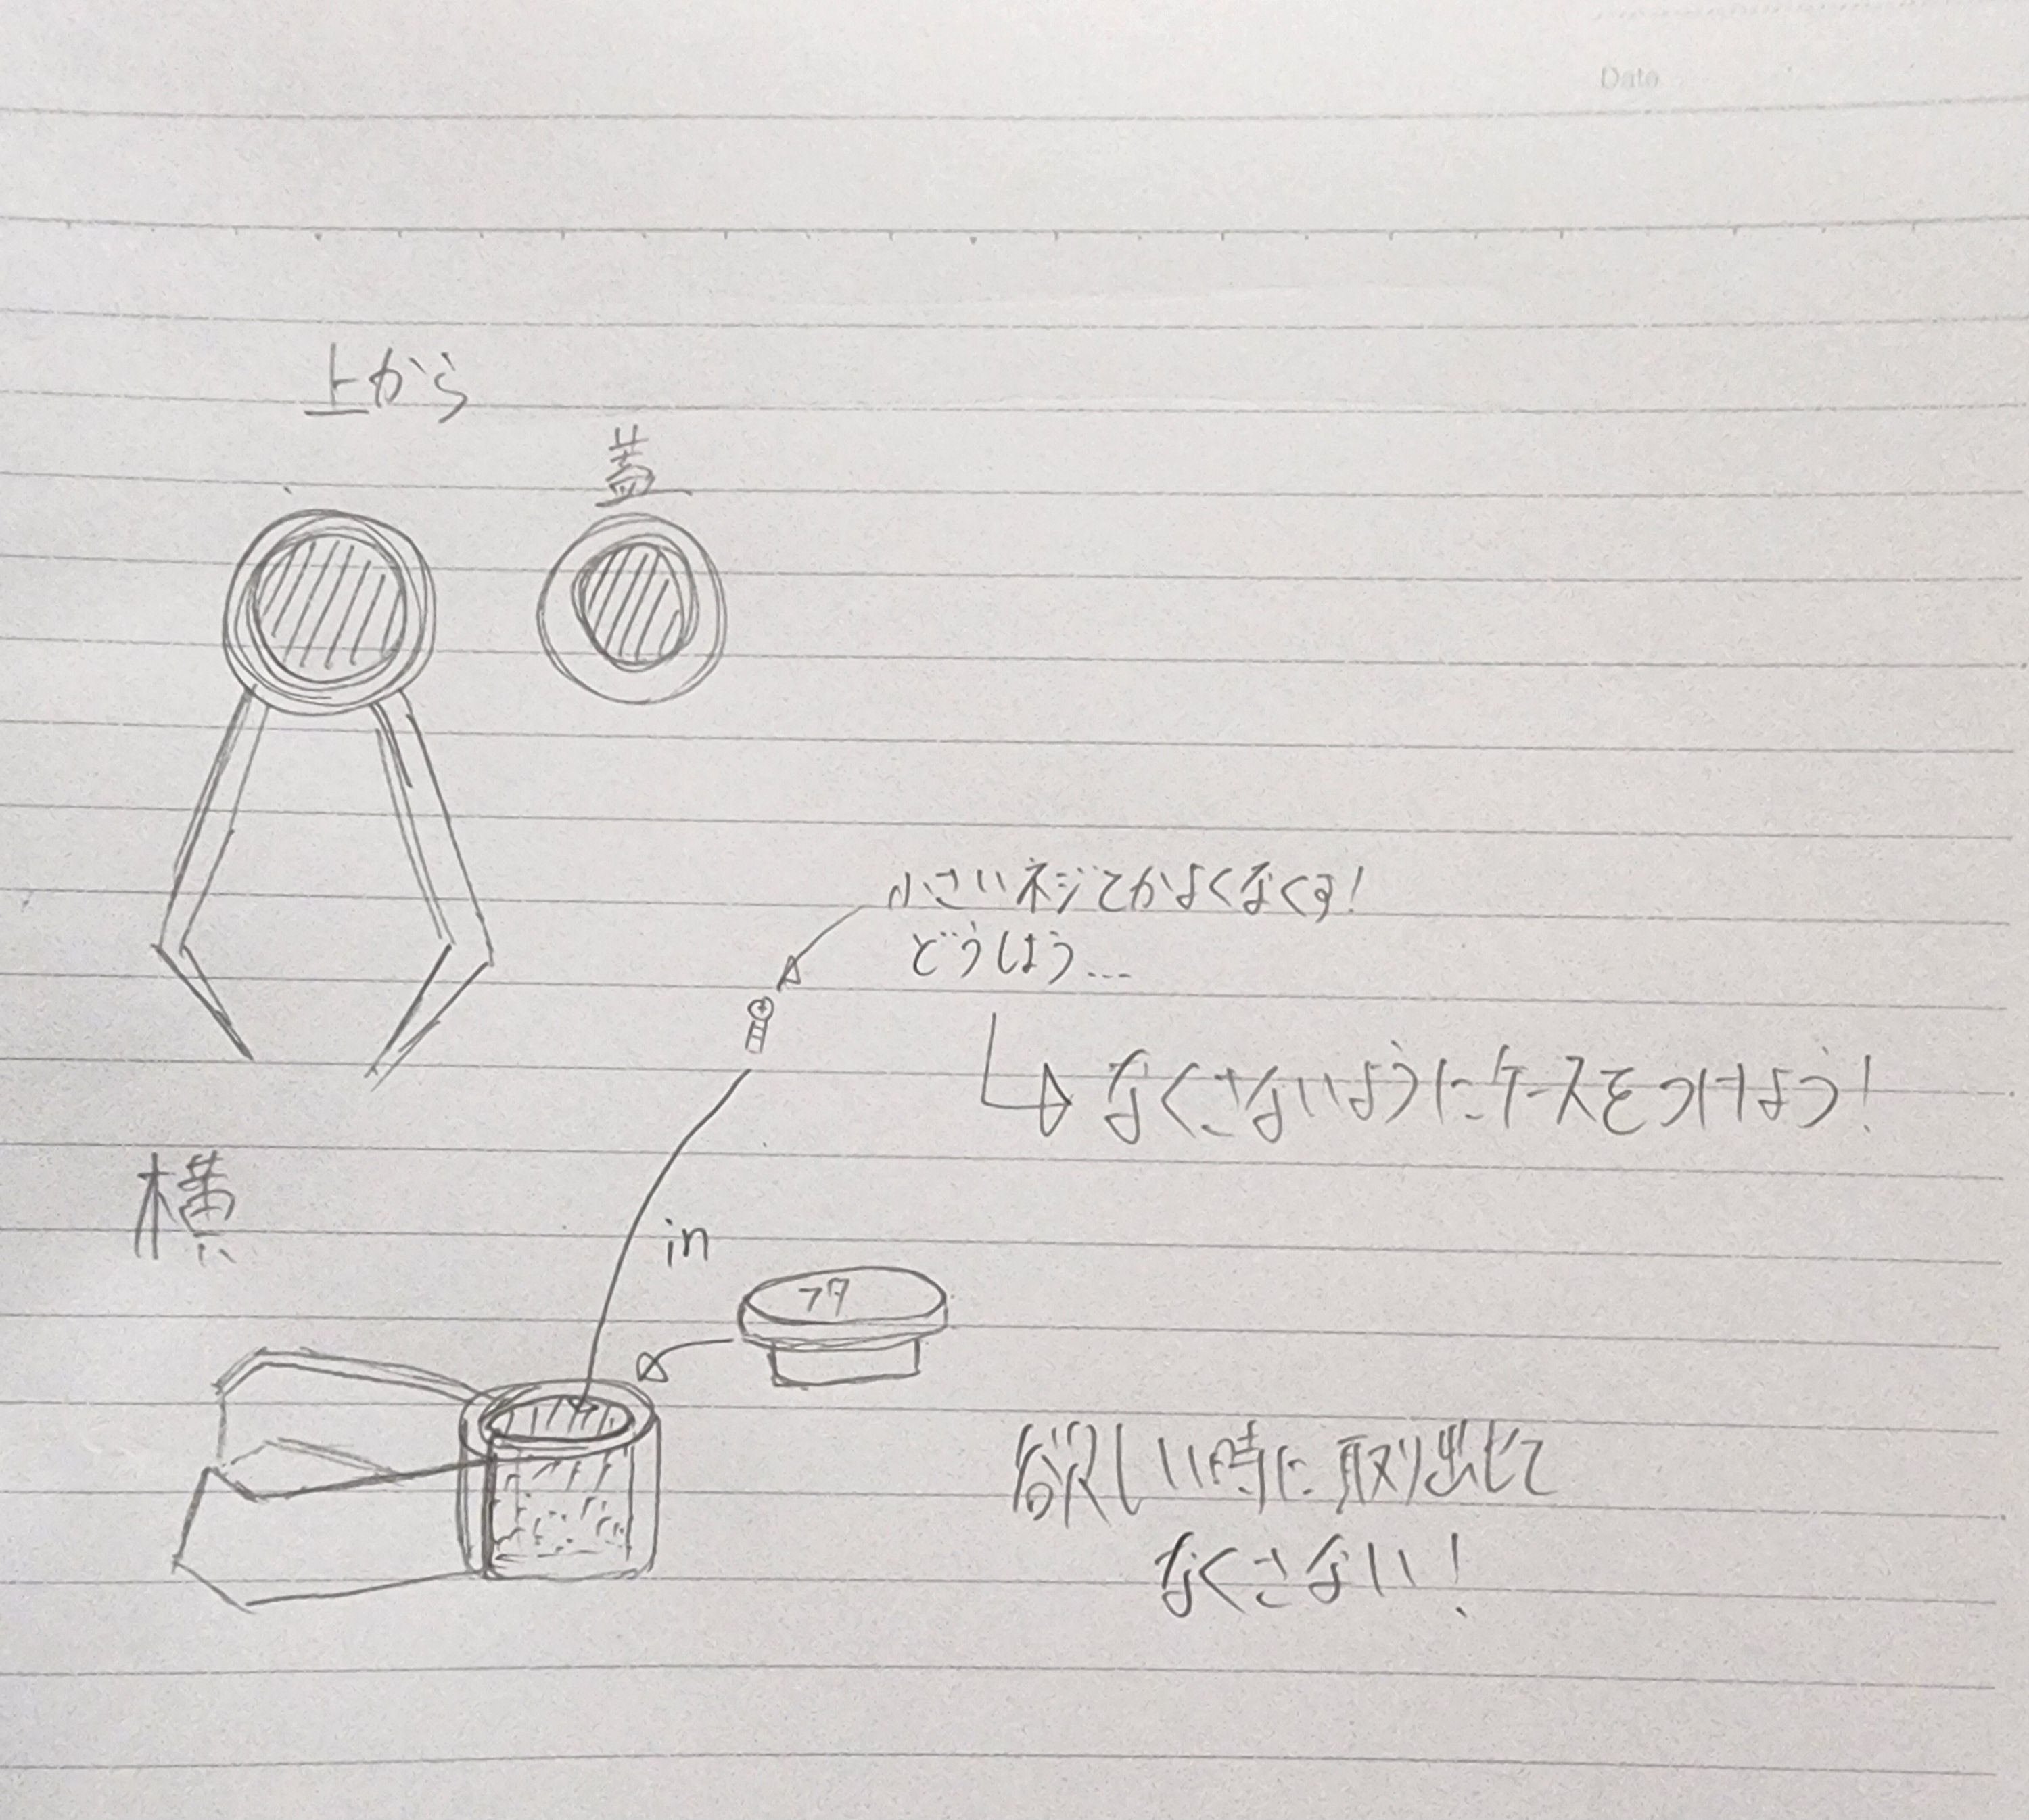 Date
上から
蓋
小さいネジとかよくなくす!
どうしよう...
なくさないようにケースをつけよう!
横
in
フタ
欲しい時に取り出して
なくさない!